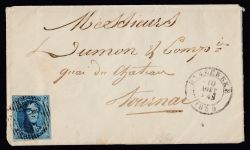 Messieurs
Dumon & Comp.ie
quai du Chateau
Tournai
10